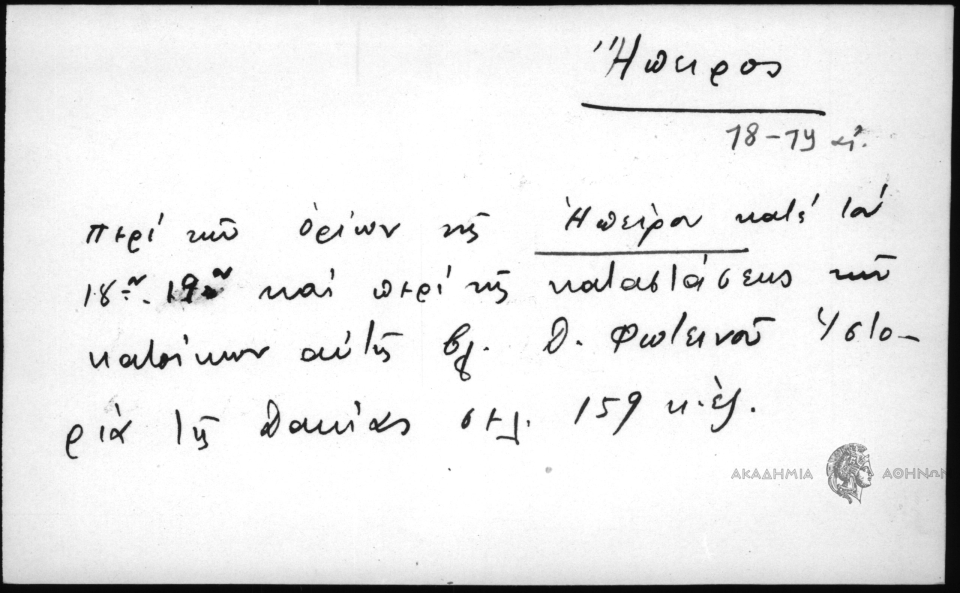 Ἤπειρος
18-19 αἰ.
περί τῶν ὁρίων τῆς Ἠπείρου κατά τόν
18ον-19ον καί περί τῆς καταστάσεως τῶν
κατοίκων αὐτῆς βλ. Δ. Φωτεινοῦ Ἱστο-
ρία τῆς Δακίας σελ. 159 κ.ἑξ.
ΑΚΑΔΗΜΙΑ ΑΘΗΝΩΝ